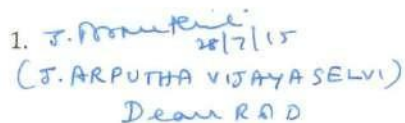 1. J.
28/7/15
(J. ARPUTHA VIJAYASELVI)
Dean R&D